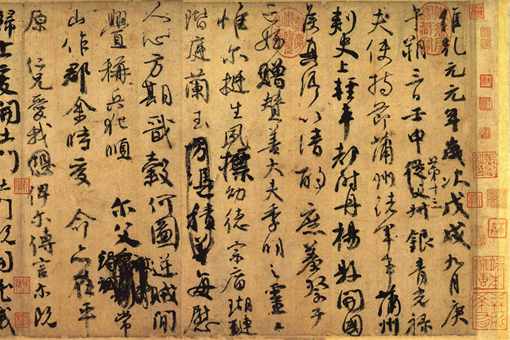 維乾元元年歲次戊戌九月庚
午朔三日壬申第十三從父叔銀青光祿
夫使持節蒲州諸軍事蒲州
刺史上輕車都尉丹楊縣開國
侯真卿以清酌庶羞祭于
亡姪贈贊善大夫季明之靈
惟爾挺生夙標幼德宗廟瑚璉
階庭蘭玉方憑積善每慰
人心方期戩穀何圖逆賊閒
釁稱兵犯順爾父竭誠常
山作郡余時受命亦在平
原仁兄愛我恐俾爾傳言爾既
歸止爰開土門土門既開凶威